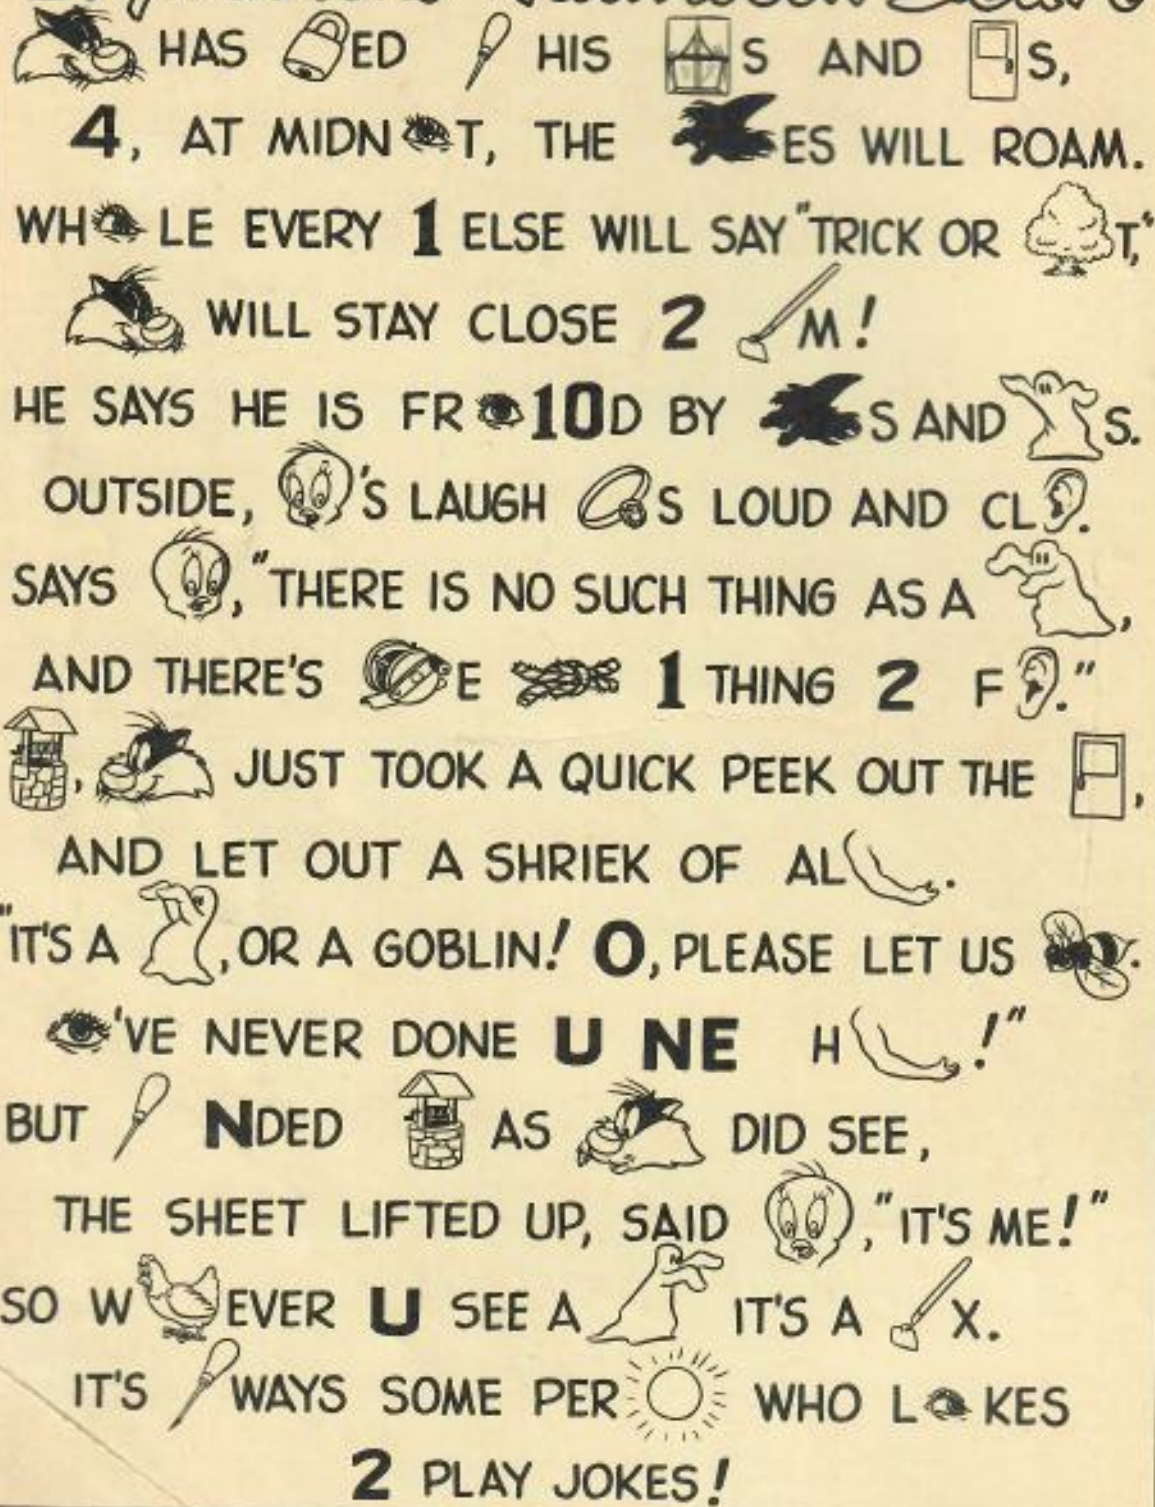 HAS ED HIS S AND S,
4, AT MIDN T, THE ES WILL ROAM.
WH LE EVERY 1 ELSE WILL SAY "TRICK OR T,"
WILL STAY CLOSE 2 M!
HE SAYS HE IS FR 10D BY S AND S.
OUTSIDE, 'S LAUGH S LOUD AND CL .
SAYS , "THERE IS NO SUCH THING AS A ,
AND THERE'S E 1 THING 2 F ."
, JUST TOOK A QUICK PEEK OUT THE ,
AND LET OUT A SHRIEK OF AL .
"IT'S A , OR A GOBLIN! O, PLEASE LET US .
'VE NEVER DONE U NE H !"
BUT NDED AS DID SEE,
THE SHEET LIFTED UP, SAID , "IT'S ME!"
SO W EVER U SEE A IT'S A X.
IT'S WAYS SOME PER WHO L KES
2 PLAY JOKES!